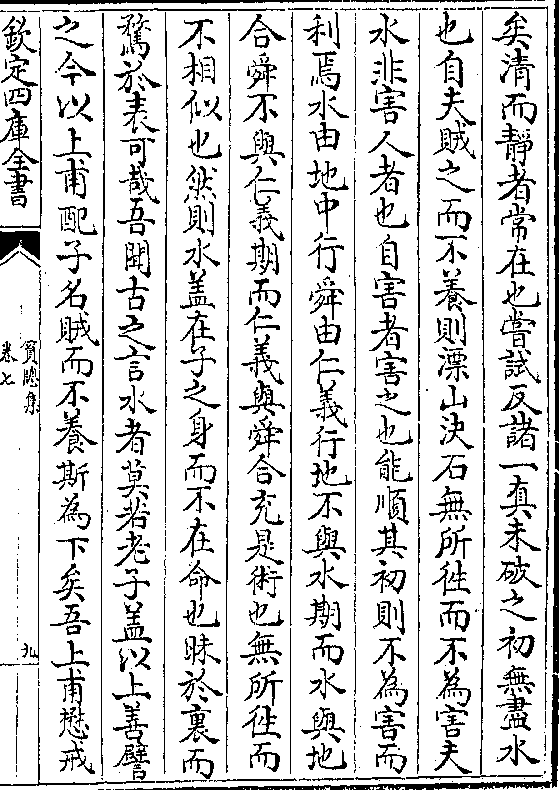 矣清而靜者常在也嘗試反諸一真未破之初無盡水
也自夫賊之而不養則漂山決石無所徃而不為害夫
水非害人者也自害者害之也能順其初則不為害而
利焉水由地中行舜由仁義行地不與水期而水與地
合舜不與仁義期而仁義與舜合充是術也無所徃而
不相似也然則水蓋在子之身而不在命也昧於裏而
騖於表可哉吾聞古之言水者莫若老子蓋以上善譬
之今以上甫配子名賊而不養斯為下矣吾上甫懋戒
欽定四庫全書
篔牕集
卷七
九